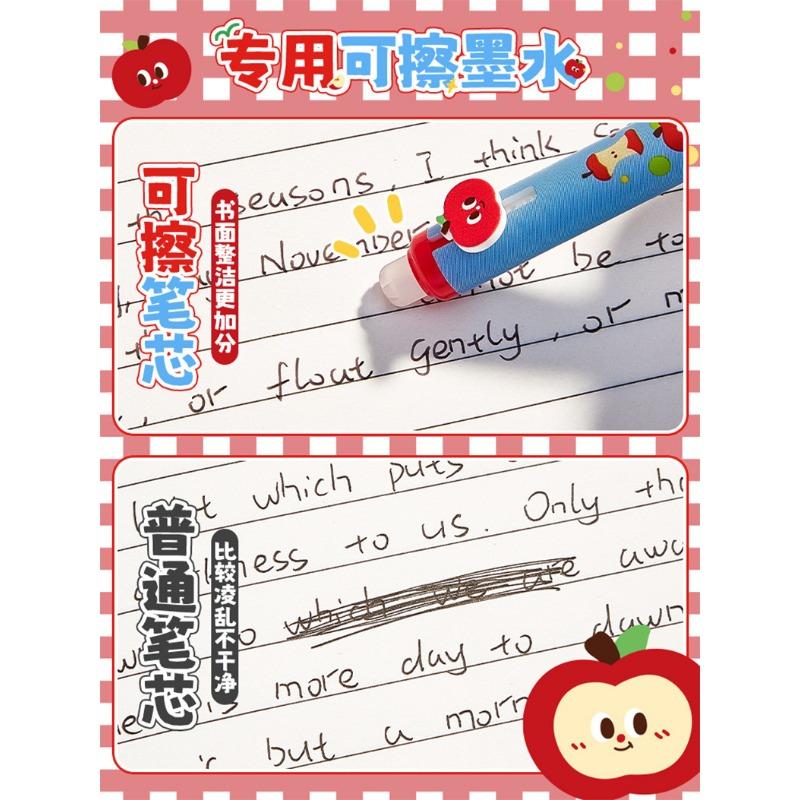 专用可擦墨水
可擦笔芯
书面整洁更加分
seasons, I think
November
not be to
or float gently, or
普通笔芯
比较凌乱不干净
which puts
to us. Only
which we are
more day to dawn
but a morn